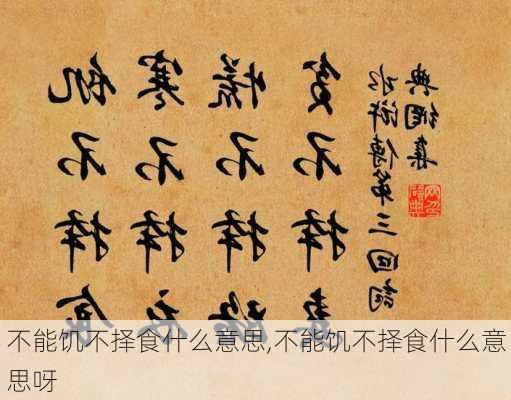 飢不擇食
寒不擇衣
慌不擇路
貧不擇妻
水滸傳第三回詞
不能饥不择食什么意思,不能饥不择食什么意
思呀